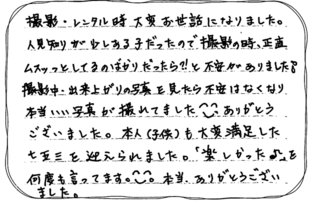 撮影・レンタル時 大変お世話になりました。
人見知りが少しある子だったので撮影の時、正直
ムスッっとしてるのばかりだったら?!と不安がありました♪
撮影中・出来上がりの写真を見たら不安はなくなり
本当いい写真が撮れてました^^。ありがとう
ございました。本人(子供)も大変満足した
七五三を迎えられました。「楽しかった♪」を
何度も言ってます。^^。本当、ありがとうござい
ました。